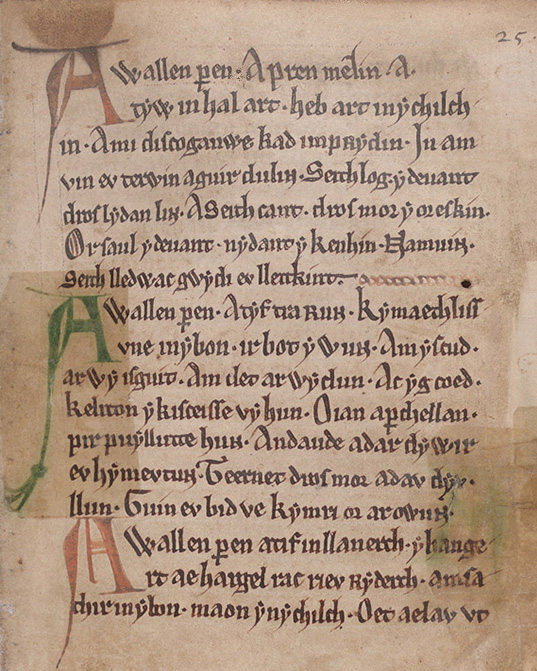 25.
Awallen peren. A pren melin. A.
tyw in hal art. heb art in y chilch
in. A mi discoganwe kad im prydin. In am
vin ev tervin a guir dulin. Seith log. y deuant
dros lydan lin. A Seith cant. dros mor y oreskin.
Or saul y deuant. nydant y kenhin. Namuin.
Seith lledwac gwydi ev lletkint.
Awallen peren. A tyf tra run. Kymaethlissv
vne in y bon. ir bot y wun. Am yscud.
ar wy isguit. Am clet ar wy clun. Ac yg coed.
keliton y kisceisse vy hun. Oian a parchellan.
pir puyllutte hun. Andaude adar dy wir
ev hymevtun. Teernet dros mor a dav dyv.
llun. Guin ev bid ve kymri or arowun.
Awallen peren a tif in llanerch. y hange
rt ae hargel rac riev ryderch. amsa
thir in y bon. maon yn y chilch. Oet aelav vt